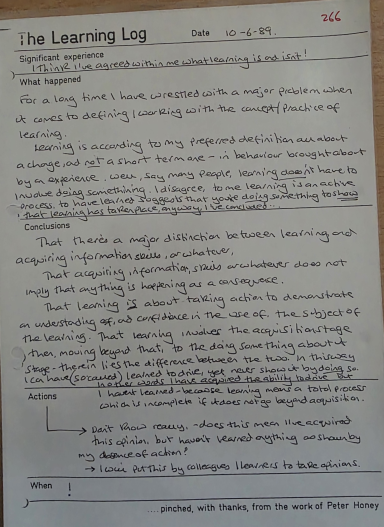 266
The Learning Log Date 10-6-89.
Significant experience
I think I've agreed within me what learning is and isn't!
What happened
For a long time I have wrestled with a major problem when
it comes to defining / working with the concept / practice of
learning.
Learning is according to my preferred definition all about
a change, and not a short term one - in behaviour brought about
by an experience. Well, say many people, learning doesn't have to
involve doing something. I disagree, to me learning is an active
process, to have learned suggests that you're doing something to show
that learning has taken place, anyway, I've concluded...
Conclusions
That there's a major distinction between learning and
acquiring information, skills, or whatever,
That acquiring information, skills or whatever does not
imply that anything is happening as a consequence.
That learning is about taking action to demonstrate
an understanding of, and confidence in the use of, the subject of
the learning. That learning involves the acquisition stage
then, moving beyond that, to the doing something about it
stage - therein lies the difference between the two. In this way
I can have (so called) learned to drive, yet never shown it by doing so.
In other words I have acquired the ability to drive but
I haven't learned - because learning means a total process
which is incomplete if it does not go beyond acquisition.
Actions
→ Don't know really, - does this mean I've acquired
this opinion, but haven't learned anything as shown by
my absence of action?
→ I will put this by colleagues / learners to take opinions.
When !
....pinched, with thanks, from the work of Peter Honey